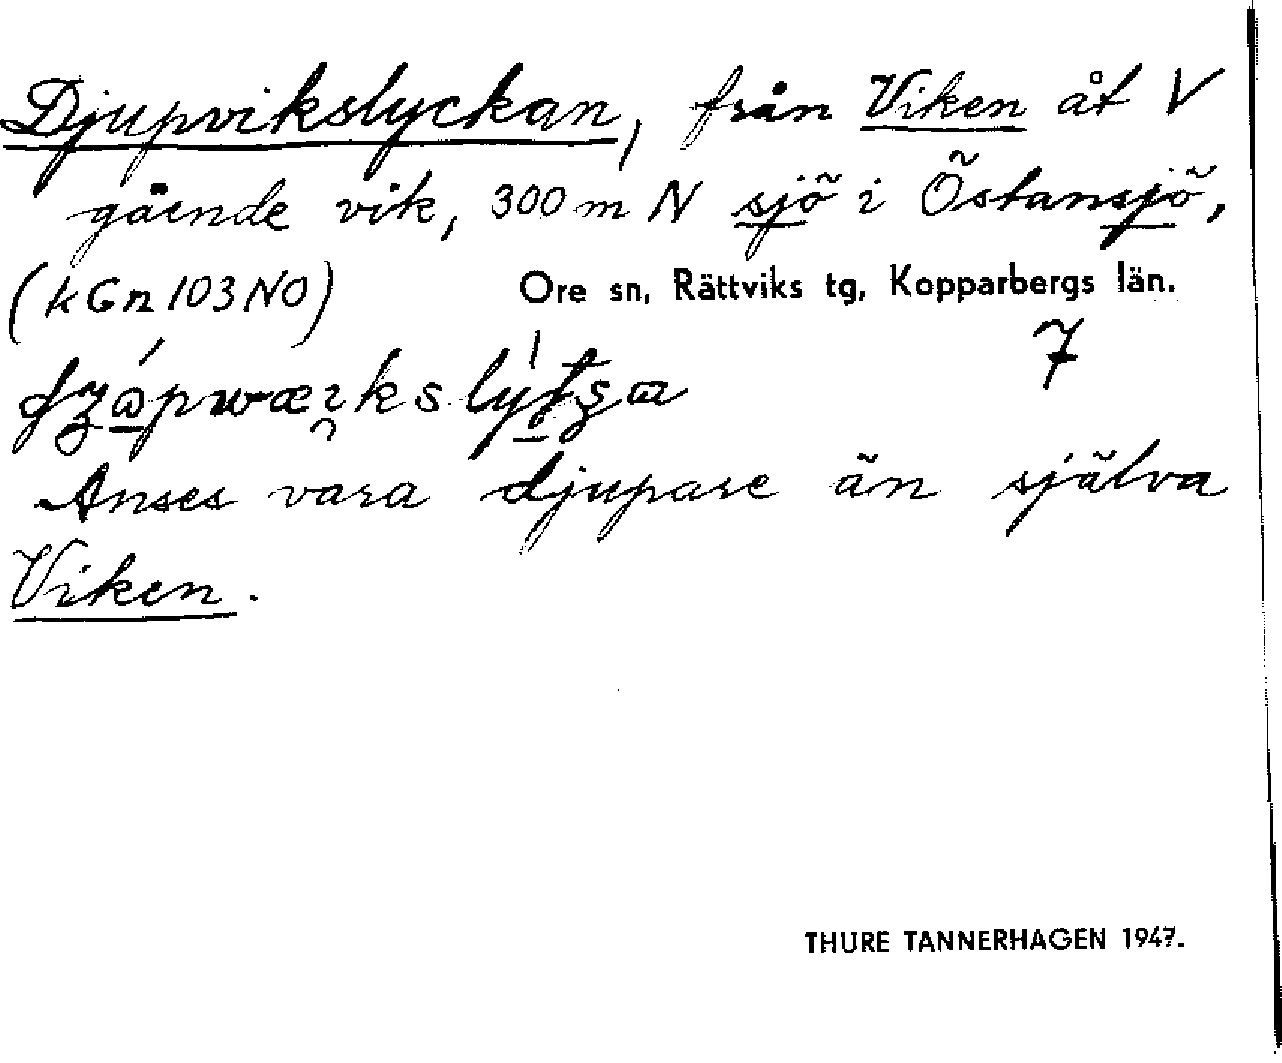 Djupvikslyckan, från Viken åt V
gående vik, 300 m N sjö i Östansjö,
(kGn 103 NO) Ore sn, Rättviks tg, Kopparbergs län.
7
Anses vara djupare än själva
Viken.
THURE TANNERHAGEN 1947.